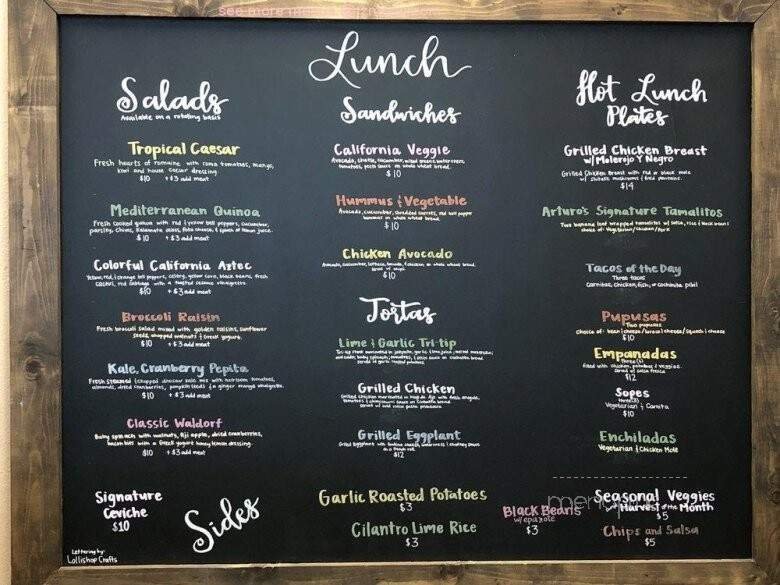 see more menus
Lunch
Salads
Available on a rotating basis
Tropical Caesar
Fresh hearts of romaine with roma tomatoes, mango,
kiwi and house caesar dressing.
$10 +$3 add meat
Mediterranean Quinoa
Fresh cooked quinoa with red & yellow bell peppers, cucumber,
parsley, chives, kalamata olives, feta cheese, & splash of lemon juice.
$10 +$3 add meat
Colorful California Aztec
Yellow, red, & orange bell peppers, celery, yellow corn, black beans, fresh
cactus, red cabbage with a toasted sesame vinaigrette.
$10 +$3 add meat
Broccoli Raisin
Fresh broccoli salad mixed with golden raisins, sunflower
seeds, chopped walnuts & Greek yogurt.
$10 +$3 add meat
Kale, Cranberry Pepita
Fresh steamed & chopped dinosaur kale mix with heirloom tomatoes,
almonds, dried cranberries, pumpkin seeds & a ginger mango vinaigrette.
$10 +$3 add meat
Classic Waldorf
Baby spinach with walnuts, fuji apple, dried cranberries,
bacon bits with a Greek yogurt honey lemon dressing.
$10 +$3 add meat
Sandwiches
California Veggie
Avocado, cucumber, mixed greens, watercress,
tomatoes, pesto sauce on whole wheat bread.
$10
Hummus & Vegetable
Avocado, cucumber, shredded carrots, red bell pepper
hummus on whole wheat bread.
$10
Chicken Avocado
Avocado, cucumber, lettuce, tomato, & chicken on whole wheat bread.
$10
Tortas
Lime & Garlic Tri-tip
Grilled Chicken
Grilled Eggplant
$12
Hot Lunch
Plates
Grilled Chicken Breast
w/ Molerojo Y Negro
Grilled Chicken Breast with red or black mole
$14
Arturo's Signature Tamalitos
Two banana leaf wrapped tamalitos w/ salsa, rice & black beans
choice of: Vegetarian/chicken/pork
Tacos of the Day
Three tacos
Carnitas, Chicken, fish, or cochinita pibil
Pupusas
Two pupusas
choice of: bean & cheese/broccoli & cheese/squash & cheese
$10
Empanadas
three(3)
filled with chicken, potatoes & veggies.
served w/ salsa fresca
$12
Sopes
three(3)
Vegetarian & Carnita
$10
Enchiladas
Vegetarian & Chicken Mole
Signature
Ceviche
$10
Sides
Garlic Roasted Potatoes
$3
Cilantro Lime Rice
$3
Black Beans
w/ epazote
$3
Seasonal Veggies
Harvest of the Month
$5
Chips and Salsa
$5
Lettering by:
Lollishop Crafts